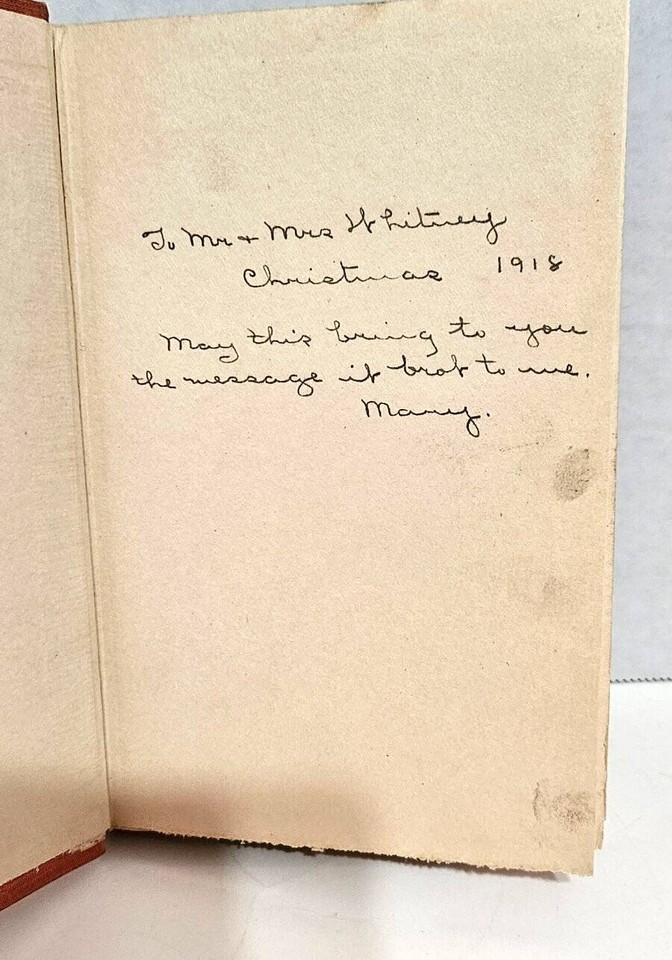 To Mr + Mrs Whitney
Christmas 1918
May this bring to you
the message it brot to me.
Mary.